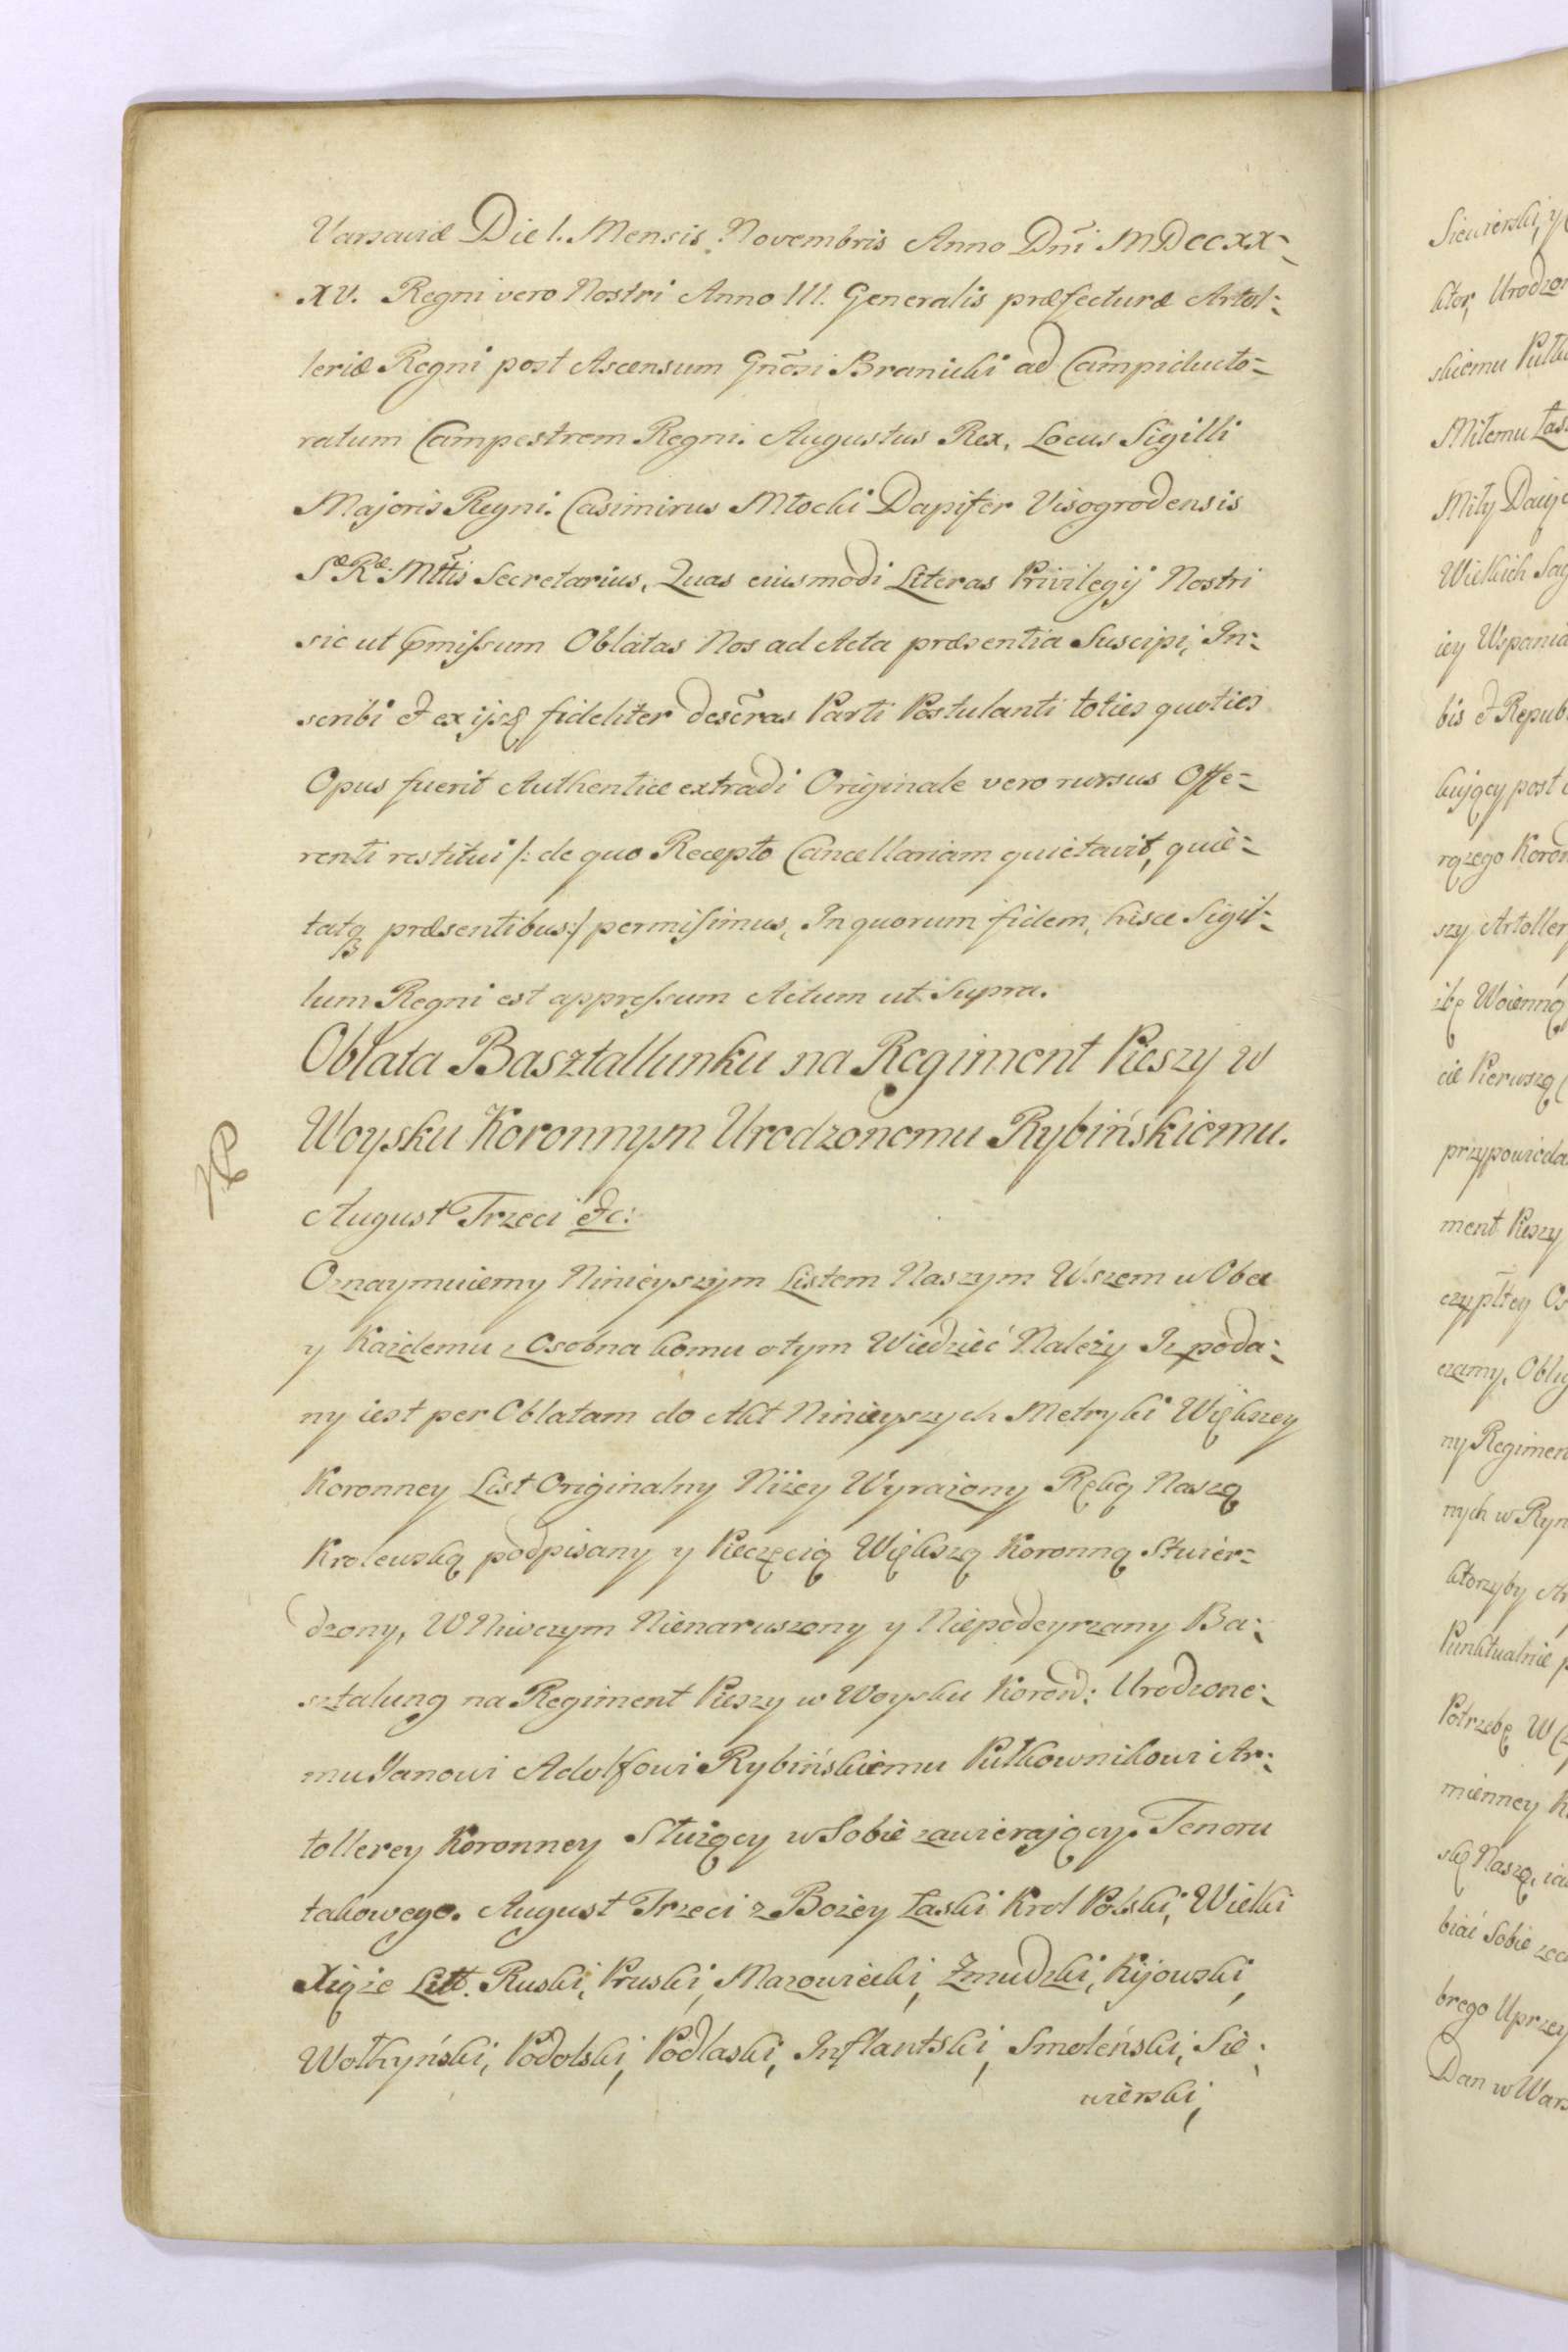 Varsaviæ Die 1. Mensis Novembris Anno Dn̄i MDCCXX=
XV. Regni vero Nostri Anno III. Generalis præfecturæ Artol=
leriæ Regni post Ascensum Gn̄osi Branicki ad Campiducto=
ratum Campestrem Regni. Augustus Rex. Locus Sigilli
Majoris Regni. Casimirus Młocki Dapifer Visogrodensis
Sæ Ræ Mt̄tis Secretarius, Quas eiusmodi Literas Privilegij Nostri
sic ut pmissum Oblatas Nos ad Acta præsentia Suscipi, In=
scribi et ex ijsq fideliter desc̄ras Parti Postulanti toties quoties
Opus fuerit Authentice extradi Originale vero rursus Offe=
renti restitui /: de quo Recepto Cancellariam quietavit, quie=
tatq præsentibus :/ permisimus, In quorum fidem, hisce Sigil=
lum Regni est appressum Actum ut Supra.
Oblata Basztallunku na Regiment Pieszy w
Woysku Koronnym Urodzonemu Rybińskiemu.
August Trzeci etc:
Oznaymuiemy Ninieyszym Listem Naszym Wszem w Obec
y Każdemu z Osobna komu o tym Wiedzieć Należy Iz poda=
ny iest per Oblatam do Akt Ninieyszych Metryki Większey
Koronney List Originalny Niżey Wyrażony Ręką Naszą
Krolewską podpisany y Pieczęcią Większą Koronną Stwier=
dzony, W Niwczym Nienaruszony y Niepodeyrzany Ba=
sztalung na Regiment Pieszy w Woysku Koron: Urodzone=
mu Janowi Adolfowi Rybińskiemu Pułkownikowi Ar=
tollerey Koronney Służący w Sobie zawierający. Tenoru
takowego. August Trzeci z Bożey Łaski Krol Polski, Wielki
Xiąże Litt. Ruski, Pruski, Mazowiecki, Żmudzki, Kijowski,
Wołhyński, Podolski, Podlaski, Inflantski, Smoleński, Sie=
wierski,
Siewierski, y
ktor, Urodzon
skiemu Pułk
Miłemu Łas
Miły Daiąc
Wielkich
iey Wspania
bis et Repub
kujący post
rązego Koron
szy Artoller
żbę Woienną
cie Pierwszą
przypowieda
ment Pieszy
czyptłey
czamy, Oblig
ny Regimen
nych w Ryn
ktorzyby
Punktualnie
Potrzebę
mienney
skę Naszą,
biać Sobie
brego Uprzey
Dan w Wars